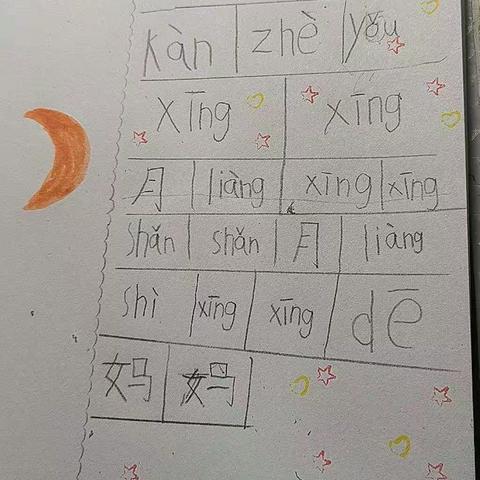 kàn zhè yǒu
xīng xīng
月 liàng xīng xīng
shǎn shǎn 月 liàng
shì xīng xīng dē
妈 妈